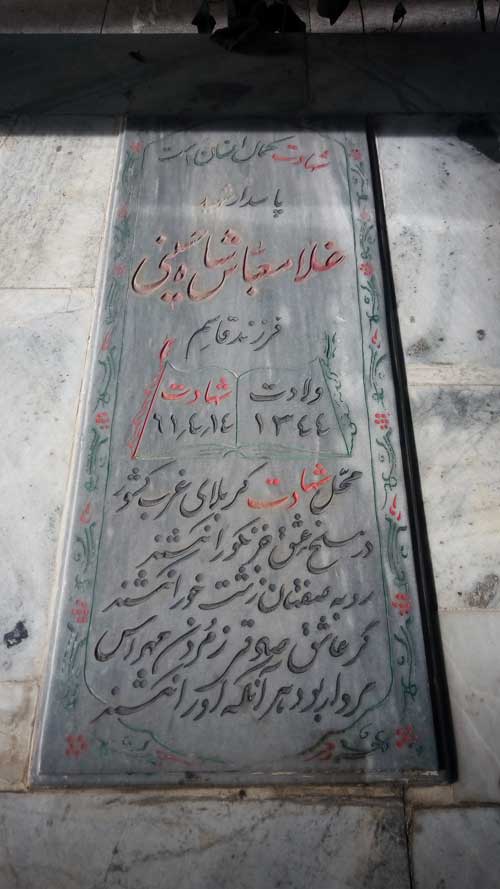 شهادت کمال انسان است
پاسدار شهید
غلامعباس شاه حسینی
فرزند قاسم
ولادت شهادت
۱۳۴۴ ۶۱٫۴٫۱۴
محل شهادت کربلای غرب کشور
در مسلخ عشق جز نکو را نکشند
روبه صفتان زشت خو را نکشند
گر عاشق صادقی ز مردن مهراس
مردار بود هر آنکه او را نکشند